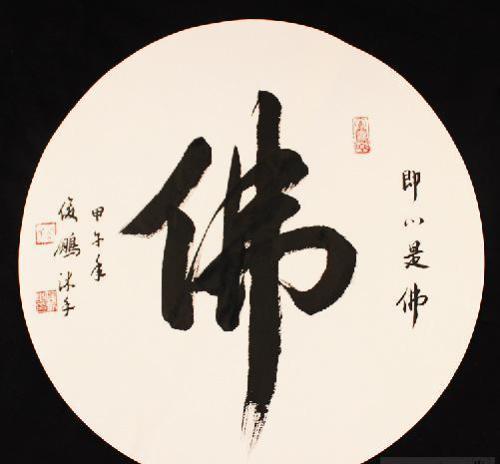 即心是佛
佛
甲午年
俊鹏沐手